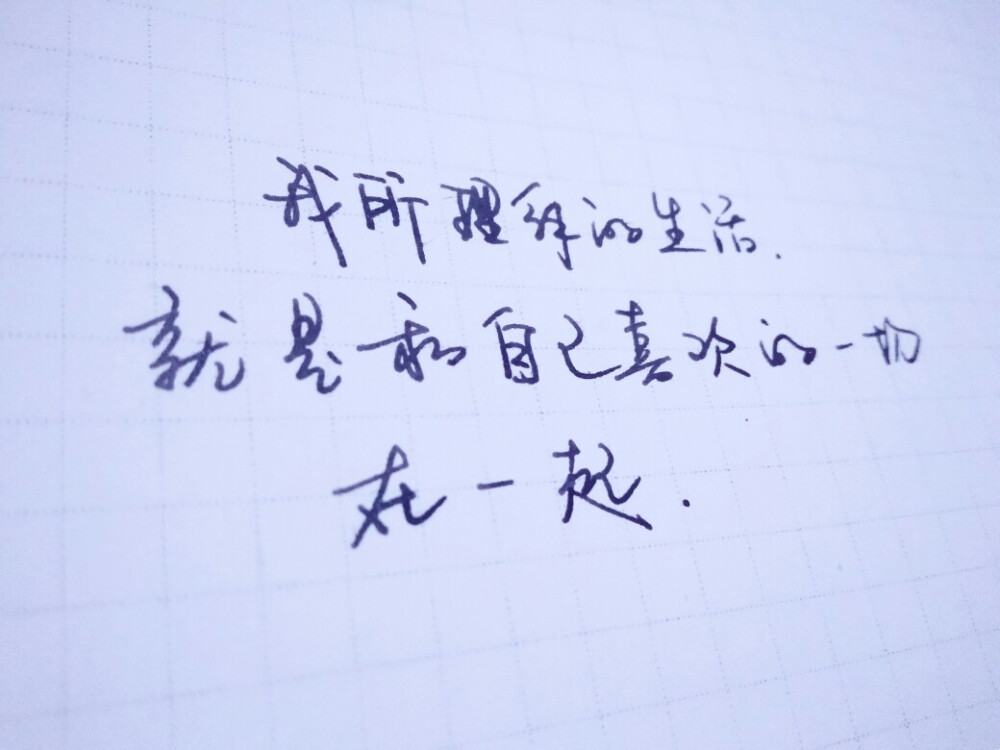 我所理解的生活.
就是和自己喜欢的一切
在一起.